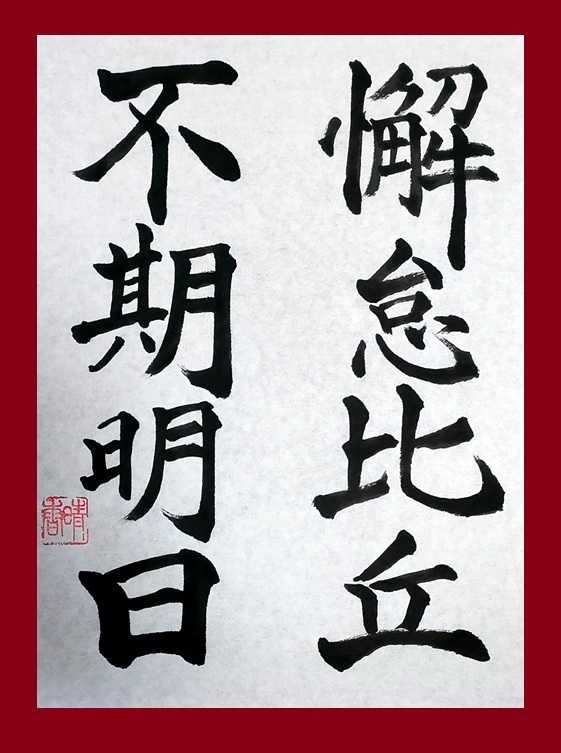 懈怠比丘
不期明日
晴香